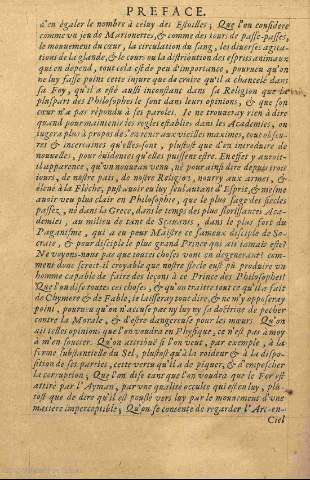 PREFACE.
d'en égaler le nombre à celuy des Estoilles; Que l'on considere
comme un jeu de Marionettes, & comme des tours de passe-passes,
le mouvement du cœur, la circulation du sang, les diverses agita-
tions de la glande, & le cours ou la distribution des esprits animaux
qui en dépend, tout cela est de peu d'importance, pourveu qu'on
ne luy fasse point cette injure que de croire qu'il a chancelé dans
sa Foy, qu'il a esté aussi inconstant dans sa Religion que la
pluspart des Philosophes le sont dans leurs opinions, & que son
cœur n'a pas répondu à ses paroles. Je ne trouveray rien à dire
quand pour maintenir les regles establies dans les Academies, on
jugera plus à propos de s'en tenir aux vieilles maximes, tout obscu-
res & incertaines qu'elles sont, plustost que d'en introduire de
nouvelles, pour évidentes qu'elles puissent estre. En effet y auroit-
il apparence, qu'un nouveau venu, né pour ainsi dire depuis trois
jours, de nostre païs, de nostre Religion, nourry aux armes, &
élevé à la Fléche, pust avoir eu luy seul autant d'Esprit, & mesme
avoir veu plus clair en Philosophie, que le plus sage des siecles
passez, né dans la Grece, dans le temps des plus florissantes Aca-
demies, au milieu de tant de Sciences, dans le plus fort du
Paganisme, qui a eu pour Maistre ce fameux disciple de So-
crate, & pour disciple le plus grand Prince qui ait jamais esté?
Ne voyons-nous pas que toutes choses vont en degenerant? com-
ment donc seroit-il croyable que nostre siecle eust pû produire un
homme capable de faire des leçons à ce Prince des Philosophes?
Que l'on dise toutes ces choses, & qu'on traitte tout ce qu'il a fait
de Chymere & de Fable, je laisseray tout dire, & ne m'y opposeray
point, pourveu qu'on n'accuse pas ny luy ny sa doctrine de pecher
contre la Morale, & d'estre dangereuse pour les mœurs. Qu'on
ait telles opinions que l'on voudra en Physique, ce n'est pas à moy
à m'en soucier. Qu'on attribuë si l'on veut, par exemple, à la
forme substantielle du Sel, plustost qu'à la roideur & à la dispo-
sition de ses parties, cette vertu qu'il a de piquer, & d'empescher
la corruption; Que l'on dise tant que l'on voudra que le Fer est
attiré par l'Ayman, par une qualité occulte qui est en luy, plû-
tost que de dire qu'il est poussé vers luy par le mouvement d'une
matiere imperceptible; Qu'on se contente de regarder l'Arc-en-
Ciel